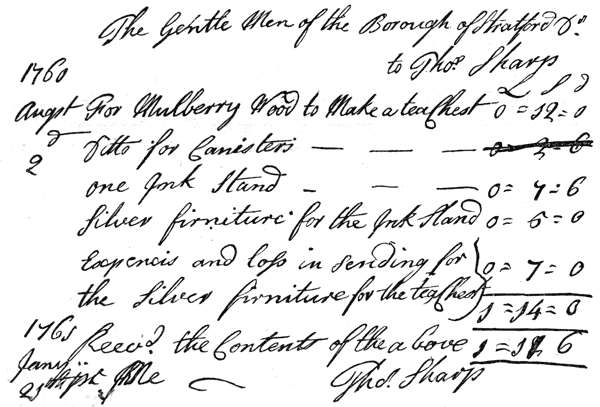 The Gentle Men of the Borough of Stratford Dr.
to Thos. Sharp
1760 L S d
Augst For Mulberry Wood to Make a teaChest 0=12=0
2d Ditto for Canisters — — — 0=2=6
one Ink Stand - — — 0=7=6
Silver firniture for the Ink Stand 0=5=0
Expencis and loss in sending for
the Silver firniture for the teaChest } 0=7=0
1=14=0
1761 Receivd. the Contents of the above 1=11 6
Jany
25th pr Me Thos. Sharp